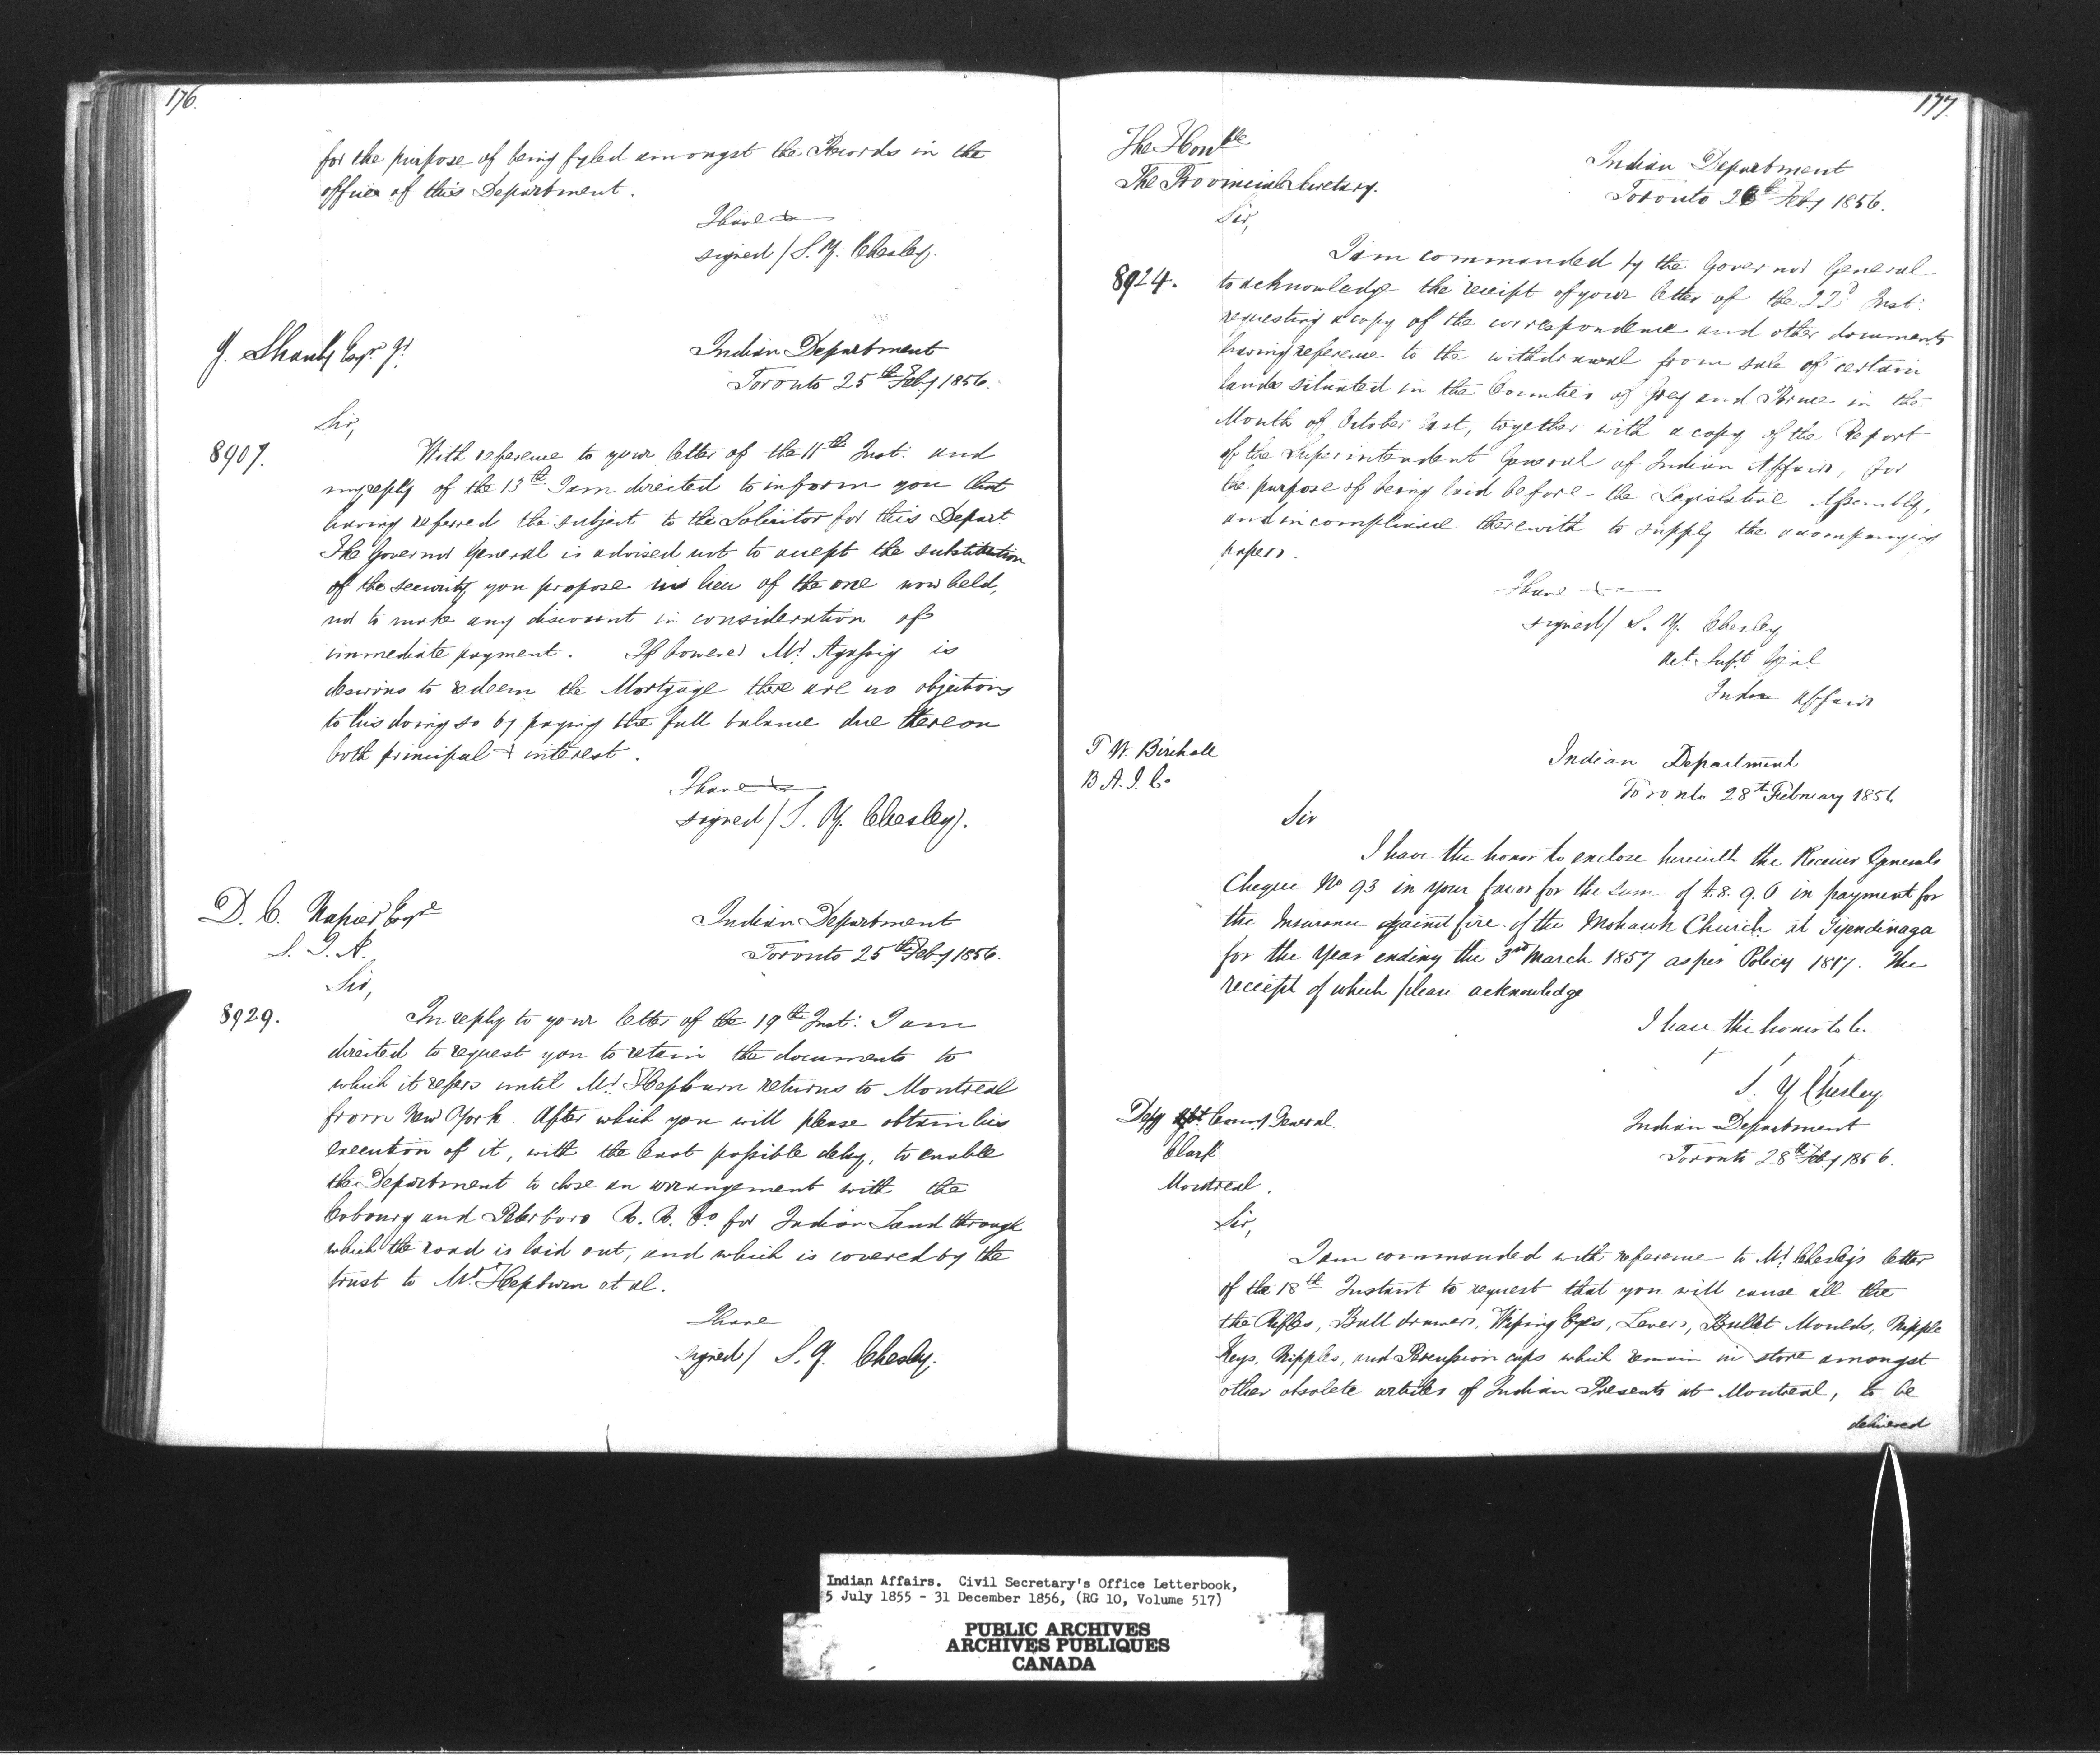 176.
for the purpose of being fyled amongst the Records in the
office of this Department.
I have &
signed / S. Y. Chesley.
Indian Department
Toronto 25th Feby 1856.
Sir,
8907.
With reference to your letter of the 11th Inst: and
my reply of the 13th I am directed to inform you that
having referred the subject to the Solicitor for this Depart
The Governor General is advised not to accept the substitution
of the security you propose in lieu of the one now held,
nor to make any discount in consideration of
immediate payment. If however Mr. is
desirous to redeem the Mortgage there are no objections
to his doing so by paying the full balance due thereon
both principal & interest.
I have &
signed / S. Y. Chesley).
D. C. Napier Esqre
S. I. A.
Indian Department
Toronto 25th Feby 1856.
Sir,
8929.
In reply to your letter of the 19th Inst: I am
directed to request you to retain the documents to
which it refers until Mr. Hepburn returns to Montreal
from New York. After which you will please obtain his
execution of it, with the least possible delay, to enable
the Department to close an arrangement with the
Cobourg and Peterboro R. R. Co. for Indian Land through
which the road is laid out, and which is covered by the
trust to Mr. Hepburn et al.
I have
signed / S. Y. Chesley.
177.
The Honble
The Provincial Secretary.
Indian Department
Toronto 26th Feby 1856.
Sir,
8924.
I am commanded by the Governor General
to acknowledge the receipt of your letter of the 22d Inst:
requesting a copy of the correspondence and other documents
having reference to the withdrawal from sale of certain
lands situated in the Counties of Grey and Bruce in the
Month of October last, together with a copy of the Report
of the Superintendent General of Indian Affairs, for
the purpose of being laid before the Legislative Assembly,
and in compliance therewith to supply the accompanying
papers.
I have &
signed / S. Y. Chesley
Act. Supt Genl
Indn Affairs
T W. Birchall
B. A. I. Co
Indian Department
Toronto 28th February 1856
Sir
I have the honor to enclose herewith the Receiver Generals
Cheque No 93 in your favor for the sum of £8. 9. 6 in payment for
the Insurance against fire of the Mohawk Church at Tyendinaga
for the Year ending the 3rd March 1857 as per Policy 1817. The
receipt of which please acknowledge
I have the honor to be
S. Y Chesley
Depy Comy General
Clark
Montreal.
Indian Department
Toronto 28th Feby 1856.
Sir,
I am commanded with reference to Mr. Chesley's letter
of the 18th Instant to request that you will cause all the
the Rifles, Ball drawers, Wiping Eyes, Levers, Bullet Moulds, Nipple
Keys, Nipples, and Percussion caps which remain in store amongst
other obsolete articles of Indian Presents at Montreal, to be
delivered
Indian Affairs. Civil Secretary's Office Letterbook,
5 July 1855 - 31 December 1856, (RG 10, Volume 517)
PUBLIC ARCHIVES
ARCHIVES PUBLIQUES
CANADA